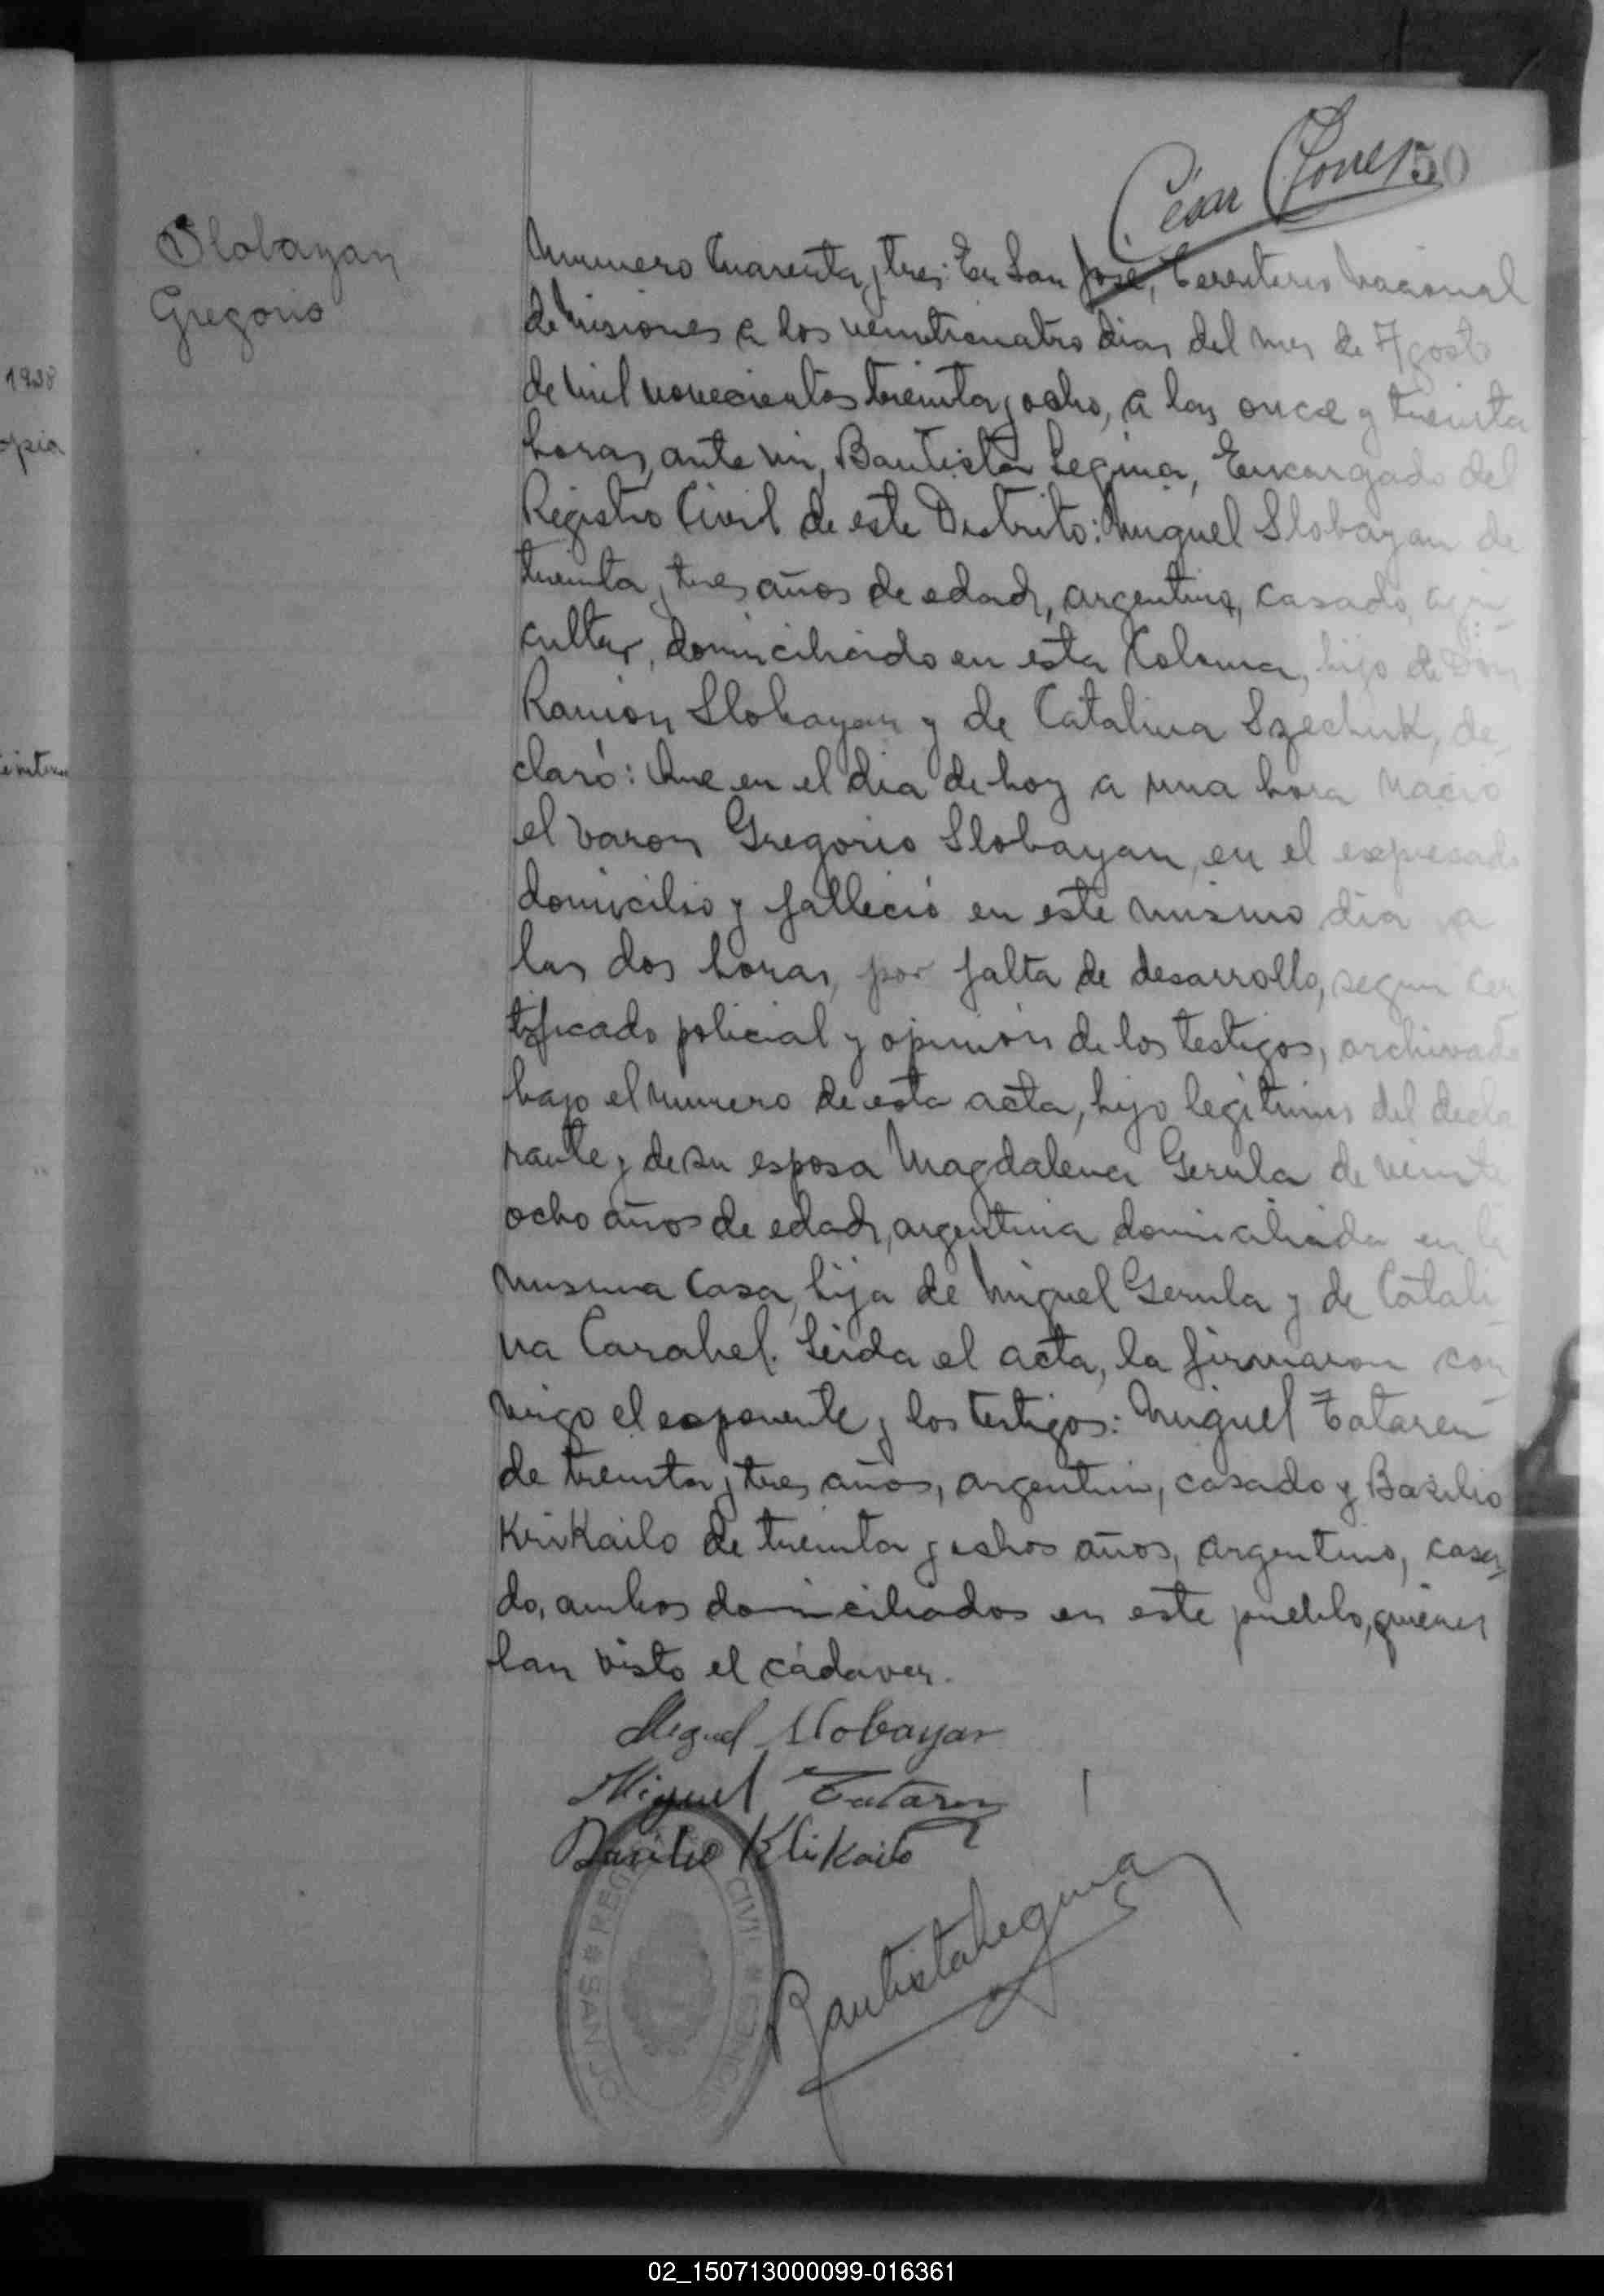 César Jones 50
Slobayan
Gregorio
1938
opia
Numero Cuarenta y tres: En San José, Territorio Nacional
de Misiones a los veinticuatro dias del mes de Agosto
de mil novecientos treinta y ocho, a las once y treinta
horas, ante mi, Bautista Legina, Encargado del
Registro Civil de este Distrito: Miguel Slobayan de
treinta y tres años de edad, argentino, casado, agri-
cultor, domiciliado en esta Colonia, hijo de Don
Ramón Slobayan y de Catalina Szechuk, de-
claró: Que en el dia de hoy a una hora nació
el varon Gregorio Slobayan, en el expresado
domicilio y falleció en este mismo dia a
las dos horas, por falta de desarrollo, segun cer-
tificado policial y opinión de los testigos, archivado
bajo el número de esta acta, hijo legitimo del decla
rante y de su esposa Magdalena Gerula de veinte
ocho años de edad, argentina domiciliada en la
misma casa, hija de Miguel Gerula y de Catali-
na Carahel. Leida el acta, la firmaron con-
migo el exponente y los testigos: Miguel Tataren
de treinta y tres años, argentino, casado y Basilio
Krikailo de treinta y ochos años, argentino, casa-
do, ambos domiciliados en este pueblo, quienes
han visto el cádaver.
Miguel Slobayan
Miguel Tataren
Basilio Klikailo
Bautista Legina
REG CIVIL
SAN JO
02_150713000099-016361